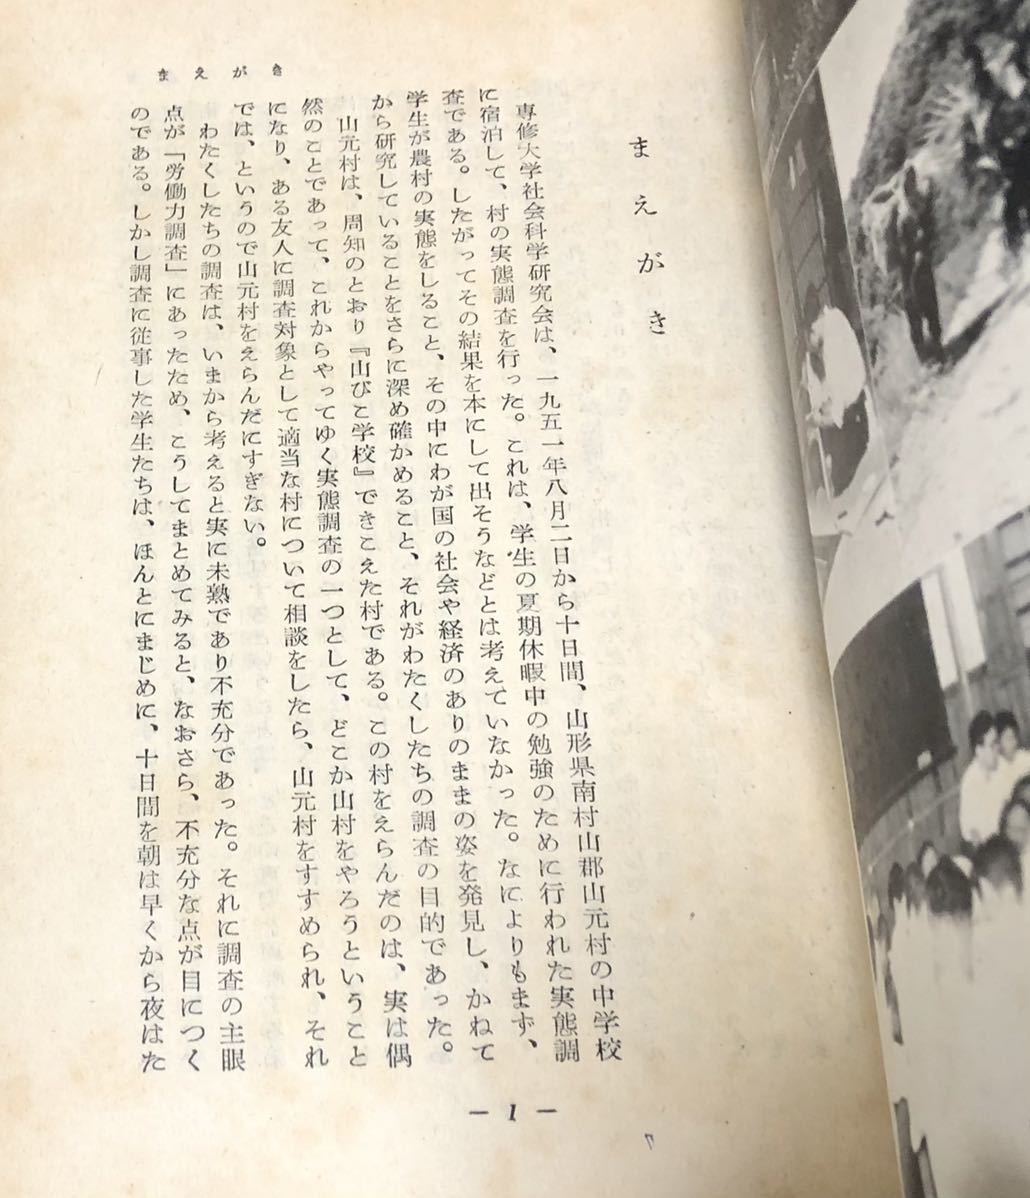 まえがき
まえがき
専修大学社会科学研究会は、一九五一年八月二日から十日間、山形県南村山郡山元村の中学校
に宿泊して、村の実態調査を行った。これは、学生の夏期休暇中の勉強のために行われた実態調
査である。したがってその結果を本にして出そうなどとは考えていなかった。なによりもまず、
学生が農村の実態をしること、その中にわが国の社会や経済のありのままの姿を発見し、かねて
から研究していることをさらに深め確かめること、それがわたくしたちの調査の目的であった。
山元村は、周知のとおり『山びこ学校』できこえた村である。この村をえらんだのは、実は偶
然のことであって、これからやってゆく実態調査の一つとして、どこか山村をやろうということ
になり、ある友人に調査対象として適当な村について相談をしたら、山元村をすすめられ、それ
では、というので山元村をえらんだにすぎない。
わたくしたちの調査は、いまから考えると実に未熟であり不充分であった。それに調査の主眼
点が「労働力調査」にあったため、こうしてまとめてみると、なおさら、不充分な点が目につく
のである。しかし調査に従事した学生たちは、ほんとにまじめに、十日間を朝は早くから夜はた
— 1 —